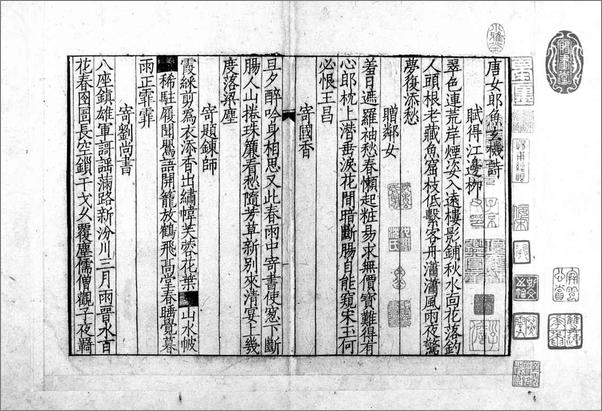 唐女郎魚玄機詩
賦得江邊柳
翠色連荒岸煙姿入遠樓影鋪秋水面花落釣
人頭根老藏魚窟枝低繫客舟瀟瀟風雨夜驚
夢復添愁
贈鄰女
羞日遮羅袖愁春懶起粧易求無價寶難得有
心郎枕上潛垂淚花間暗斷腸自能窺宋玉何
必恨王昌
寄國香
旦夕醉吟身相思又此春雨中寄書使窗下斷
腸人山捲珠簾看愁隨芳草新別來清宴上幾
度落梁塵
寄題鍊師
霞綵剪為衣添香出繡幃芙蓉花葉山水帔
稀駐履聞鶯語開籠放鶴飛高堂春睡覺暮
雨正霏霏
寄劉尚書
八座鎮雄軍歌謡滿路新汾川三月雨晉水百
花春囹圄長空鎖干戈久覆塵儒僧觀子夜羇